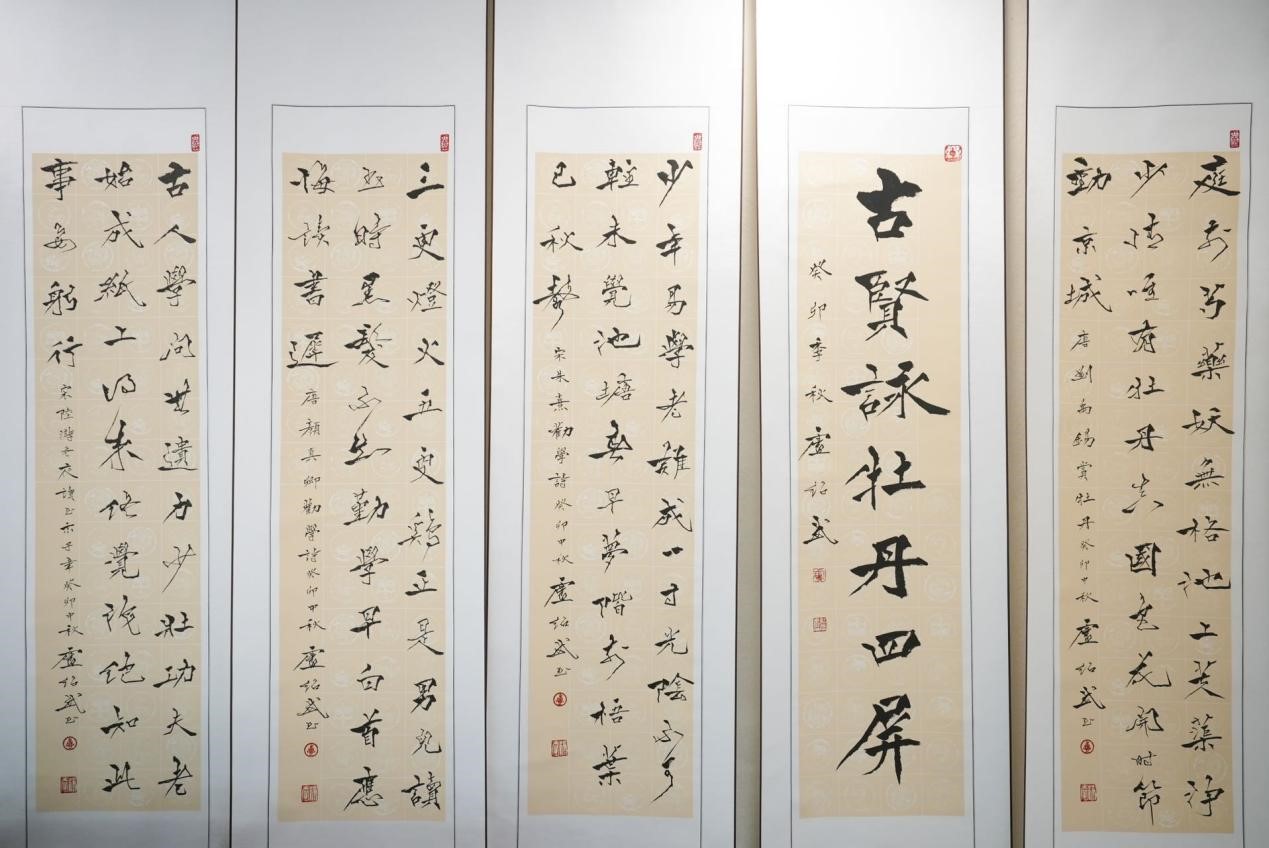 庭前芍藥妖無格池上芙蕖淨
少情唯有牡丹真國色花開时節
動京城 唐劉禹錫賞牡丹癸卯中秋盧紹武书
古賢詠牡丹四屏
癸卯季秋盧紹武
少年易學老難成一寸光陰不可
輕未覺池塘春早夢階前梧葉
已秋聲 宋朱熹勸學詩癸卯中秋盧紹武书
三更燈火五更鷄正是男兒讀
书時黑髮不知勤學早白首應
悔讀書遲 唐顏真卿勸學詩癸卯中秋盧紹武书
古人學問無遺力少壯功夫老
始成紙上得來終覺淺絕知此
事要躬行 宋陸游冬夜讀书示子聿癸卯中秋盧紹武书